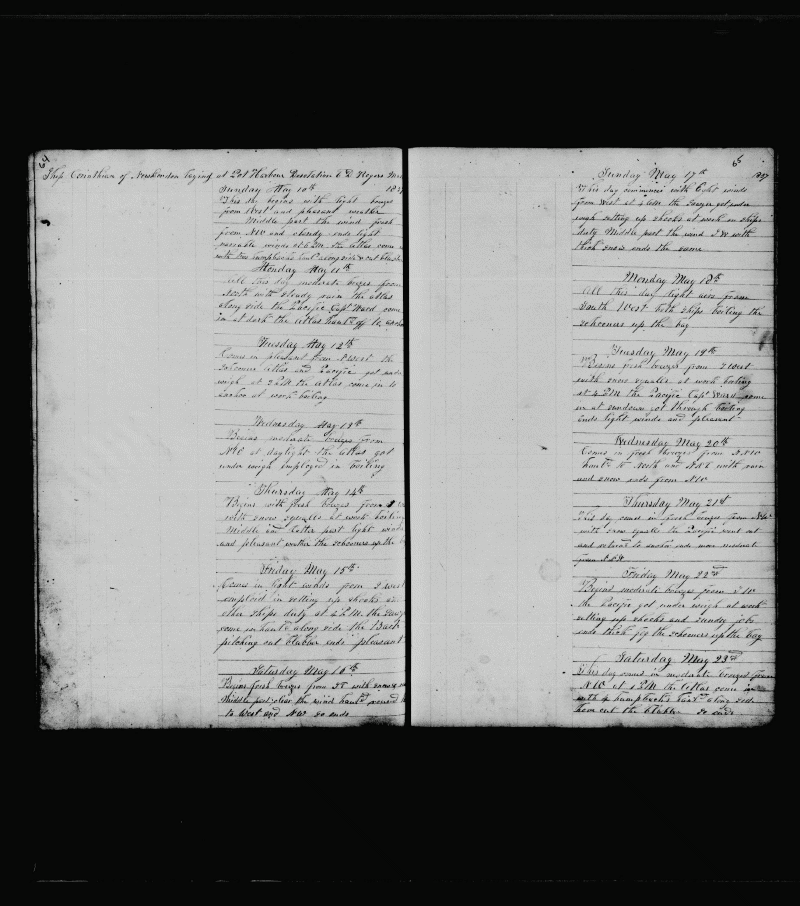 64
Ship Corinthian of New London laying at Pot Harbour Desolation E D Rogers
Sunday May 10th 18
This day begins with light breezes
from West and pleasant weather
Middle part the wind fresh
from NW and cloudy ends light
variable winds at 6 PM the Atlas came
with two humpbacks haul along side & cut blubber
Monday May 11th
All this day moderate breezes from
North with steady rain the Atlas
along side the Pacific Capt Ward come
in at dark the Atlas haul off to anchor
Tuesday May 12th
Comes in pleasant from N West the
Schooners Atlas and Pacific got under
weigh at 2 PM the Atlas came in to
anchor at work boiling
Wednesday May 13th
Begins moderate breezes from
NW at daylight the Atlas got
under weigh employed in boiling
Thursday May 14th
Begins with fresh breezes from
with snow squalls at work boiling
Middle and latter part light winds
and pleasant weather the schooners up the
Friday May 15th
Comes in light winds from S West
employed in setting up shooks and
other ships duty at 4 PM the
come in haul along side the Bark
pitching out blubber ends pleasant
Saturday May 16th
Begins fresh breezes from SE with
Middle part clear the wind haul around
to West and NW so ends
65
Sunday May 17th
This day commences with light winds
from West at 4 AM the got under
weigh setting up shooks at work in ships
duty Middle part the wind SW with
thick snow ends the same
Monday May 18th
All this day light airs from
South West both ships boiling the
schooners up the bay
Tuesday May 19th
Begins fresh breezes from S West
with snow squalls at work boiling
at 4 PM the Pacific Capt Ward came
in at sundown got through boiling
ends light winds and pleasant
Wednesday May 20th
Comes in fresh breezes from NNW
haul to North and NNE with rain
and snow ends from NW
Thursday May 21st
This day comes in fresh breezes from
with snow squalls the Pacific went out
and returned to anchor ends more moderate
from
Friday May 22nd
Begins moderate breezes from SW
the Pacific got under weigh at work
setting up shooks and sundry jobs
ends thick fog the schooners up the bay
Saturday May 23rd
This day comes in moderate breezes from
NW at 1 PM the Atlas came in
with 4 humpbacks haul along side
hove out the blubber so ends